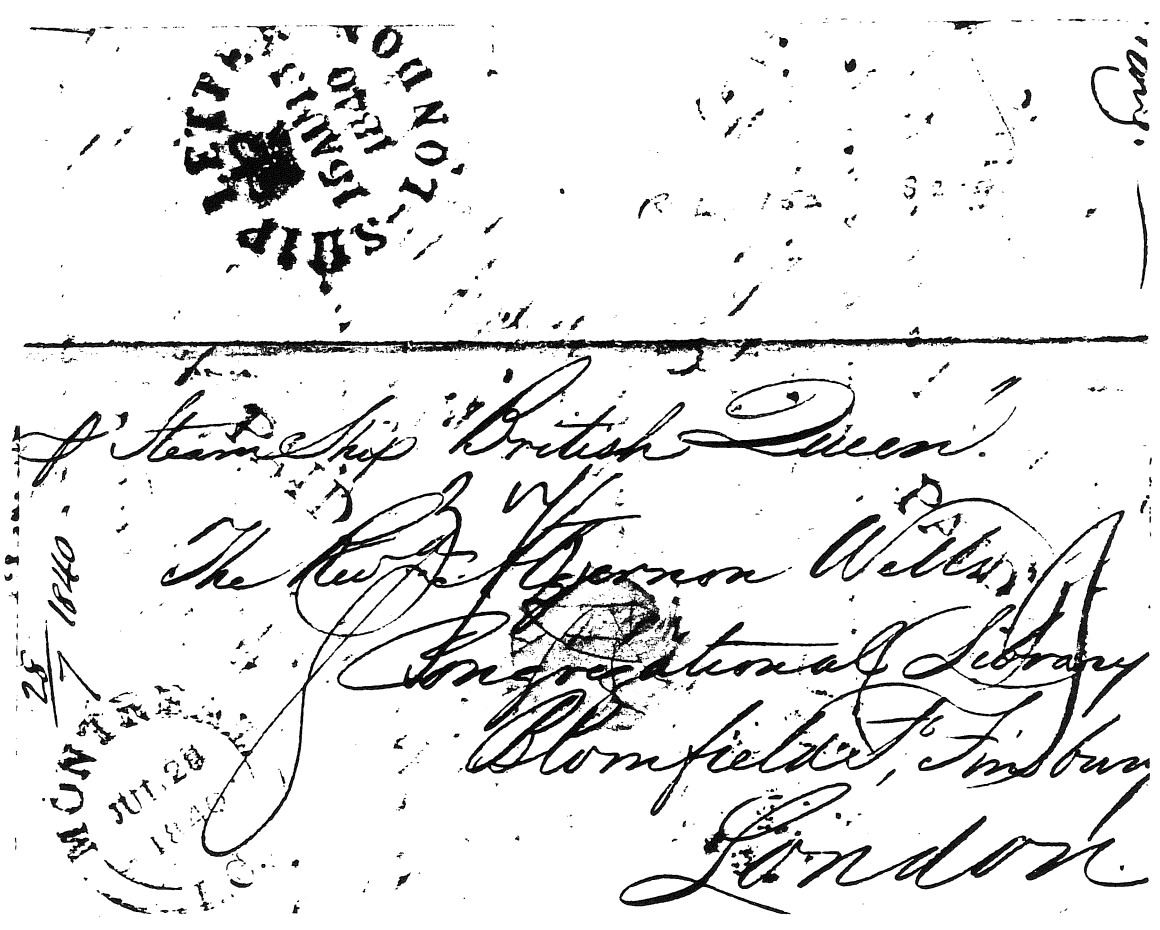 SHIP LETTER LONDON
15 AU 15
1840
pr Steam Ship "British Queen".
The Revd. Algernon Wells
Congregational Library
Blomfield St, Finsbury
London.
28/7 1840
MONTREAL
JUL 28
1840
L.C.